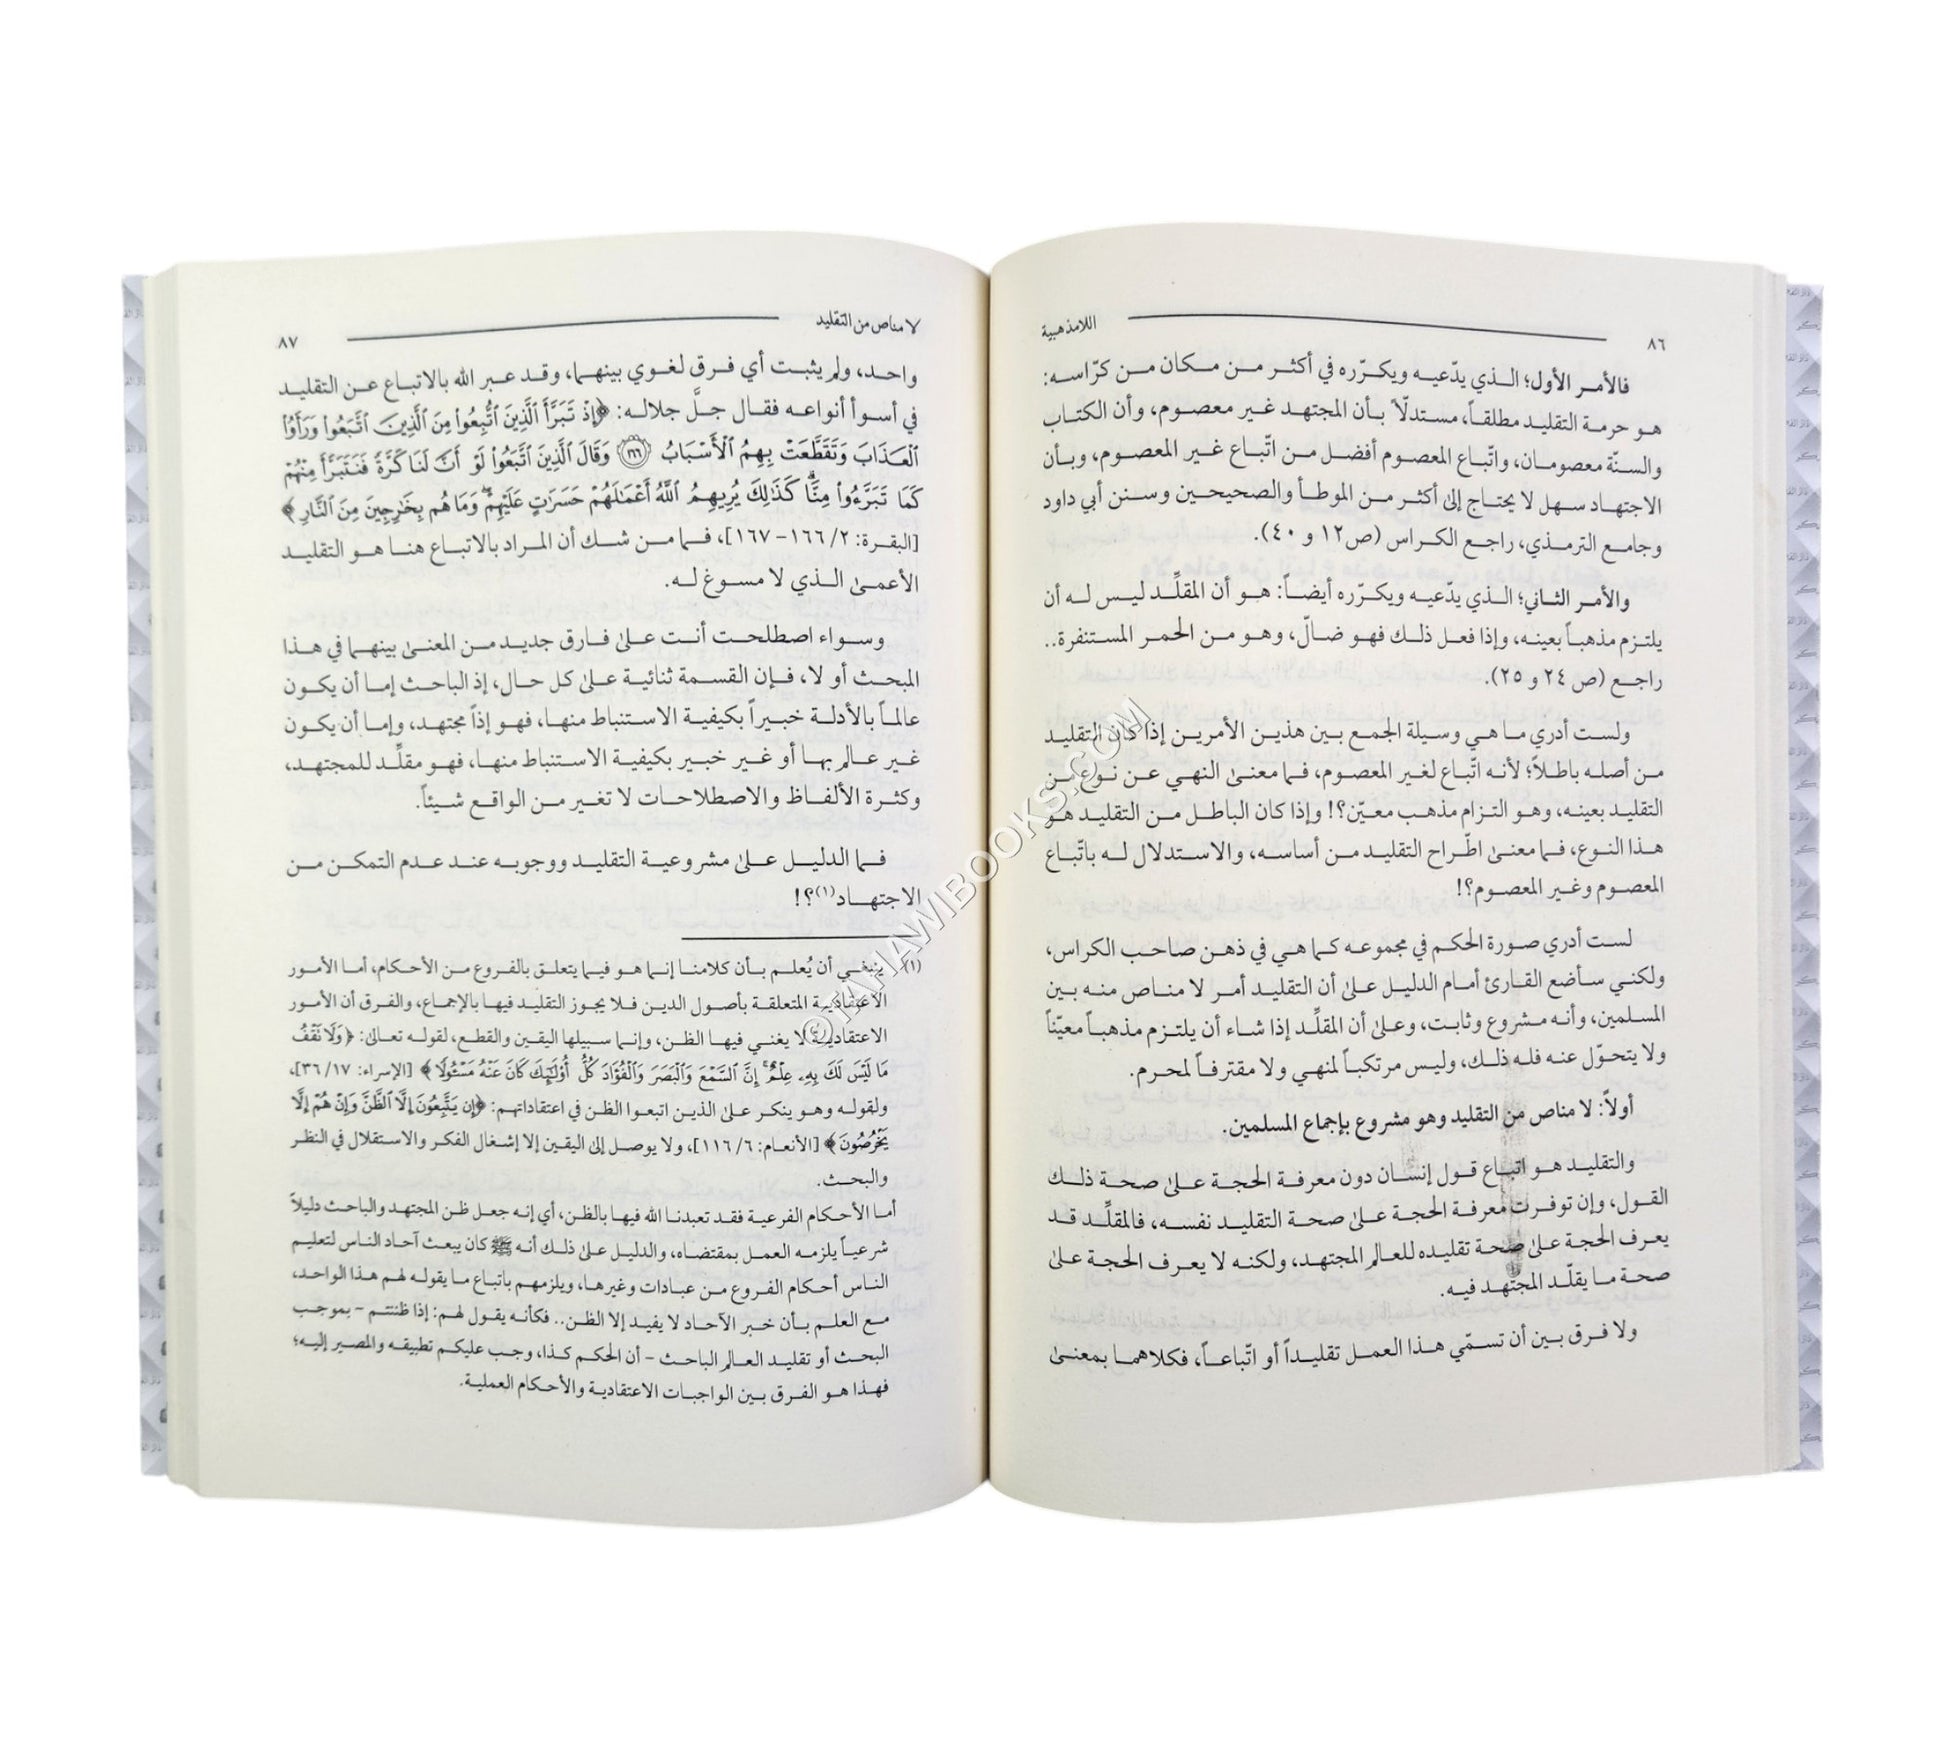 ٨٦ اللامذهبية
فالأمر الأول؛ الذي يدّعيه ويكرّره في أكثر من مكان من كرّاسه:
هو حرمة التقليد مطلقاً، مستدلّاً بأن المجتهد غير معصوم، وأن الكتاب
والسنّة معصومان، واتّباع المعصوم أفضل من اتّباع غير المعصوم، وبأن
الاجتهاد سهل لا يحتاج إلى أكثر من الموطأ والصحيحين وسنن أبي داود
وجامع الترمذي، راجع الكراس (ص١٢ و ٤٠).
والأمر الثاني؛ الذي يدّعيه ويكرّره أيضاً: هو أن المقلِّد ليس له أن
يلتزم مذهباً بعينه، وإذا فعل ذلك فهو ضالّ، وهو من الحمر المستنفرة..
راجع (ص ٢٤ و ٢٥).
ولست أدري ما هي وسيلة الجمع بين هذين الأمرين إذا كان التقليد
من أصله باطلاً؛ لأنه اتّباع لغير المعصوم، فما معنى النهي عن نوع من
التقليد بعينه، وهو التزام مذهب معيّن؟! وإذا كان الباطل من التقليد هو
هذا النوع، فما معنى اطّراح التقليد من أساسه، والاستدلال له باتّباع
المعصوم وغير المعصوم؟!
لست أدري صورة الحكم في مجموعه كما هي في ذهن صاحب الكراس،
ولكني سأضع القارئ أمام الدليل على أن التقليد أمر لا مناص منه بين
المسلمين، وأنه مشروع وثابت، وعلى أن المقلِّد إذا شاء أن يلتزم مذهباً معيّناً
ولا يتحوّل عنه فله ذلك، وليس مرتكباً لمنهي ولا مقترفاً لمحرم.
أولاً: لا مناص من التقليد وهو مشروع بإجماع المسلمين.
والتقليد هو اتباع قول إنسان دون معرفة الحجة على صحة ذلك
القول، وإن توفرت معرفة الحجة على صحة التقليد نفسه، فالمقلِّد قد
يعرف الحجة على صحة تقليده للعالم المجتهد، ولكنه لا يعرف الحجة على
صحة ما يقلّد المجتهد فيه.
ولا فرق بين أن تسمّي هذا العمل تقليداً أو اتّباعاً، فكلاهما بمعنى
لا مناص من التقليد ٨٧
واحد، ولم يثبت أي فرق لغوي بينهما، وقد عبر الله بالاتباع عن التقليد
في أسوأ أنواعه فقال جلَّ جلاله: ﴿إِذْ تَبَرَّأَ ٱلَّذِينَ ٱتُّبِعُوا۟ مِنَ ٱلَّذِينَ ٱتَّبَعُوا۟ وَرَأَوُا۟
ٱلْعَذَابَ وَتَقَطَّعَتْ بِهِمُ ٱلْأَسْبَابُ ١٦٦ وَقَالَ ٱلَّذِينَ ٱتَّبَعُوا۟ لَوْ أَنَّ لَنَا كَرَّةً فَنَتَبَرَّأَ مِنْهُمْ
كَمَا تَبَرَّءُوا۟ مِنَّا ۗ كَذَٰلِكَ يُرِيهِمُ ٱللَّهُ أَعْمَٰلَهُمْ حَسَرَٰتٍ عَلَيْهِمْ ۖ وَمَا هُم بِخَٰرِجِينَ مِنَ ٱلنَّارِ﴾
[البقرة: ٢/ ١٦٦- ١٦٧]، فما من شك أن المراد بالاتباع هنا هو التقليد
الأعمى الذي لا مسوغ له.
وسواء اصطلحت أنت على فارق جديد من المعنى بينهما في هذا
المبحث أو لا، فإن القسمة ثنائية على كل حال، إذ الباحث إما أن يكون
عالماً بالأدلة خبيراً بكيفية الاستنباط منها، فهو إذاً مجتهد، وإما أن يكون
غير عالم بها أو غير خبير بكيفية الاستنباط منها، فهو مقلِّد للمجتهد،
وكثرة الألفاظ والاصطلاحات لا تغير من الواقع شيئاً.
فما الدليل على مشروعية التقليد ووجوبه عند عدم التمكن من
الاجتهاد(١)؟!
(١) ينبغي أن يُعلم بأن كلامنا إنما هو فيما يتعلق بالفروع من الأحكام، أما الأمور
الاعتقادية المتعلقة بأصول الدين فلا يجوز التقليد فيها بالإجماع، والفرق أن الأمور
الاعتقادية لا يغني فيها الظن، وإنما سبيلها اليقين والقطع، لقوله تعالى: ﴿وَلَا تَقْفُ
مَا لَيْسَ لَكَ بِهِۦ عِلْمٌ ۚ إِنَّ ٱلسَّمْعَ وَٱلْبَصَرَ وَٱلْفُؤَادَ كُلُّ أُو۟لَٰٓئِكَ كَانَ عَنْهُ مَسْـُٔولًا﴾ [الإسراء: ١٧/ ٣٦]،
ولقوله وهو ينكر على الذين اتبعوا الظن في اعتقاداتهم: ﴿إِن يَتَّبِعُونَ إِلَّا ٱلظَّنَّ وَإِنْ هُمْ إِلَّا
يَخْرُصُونَ﴾ [الأنعام: ٦/ ١١٦]، ولا يوصل إلى اليقين إلا إشغال الفكر والاستقلال في النظر
والبحث.
أما الأحكام الفرعية فقد تعبدنا الله فيها بالظن، أي إنه جعل ظن المجتهد والباحث دليلاً
شرعياً يلزمه العمل بمقتضاه، والدليل على ذلك أنه ﷺ كان يبعث آحاد الناس لتعليم
الناس أحكام الفروع من عبادات وغيرها، ويلزمهم باتباع ما يقوله لهم هذا الواحد،
مع العلم بأن خبر الآحاد لا يفيد إلا الظن.. فكأنه يقول لهم: إذا ظننتم - بموجب
البحث أو تقليد العالم الباحث - أن الحكم كذا، وجب عليكم تطبيقه والمصير إليه؛
فهذا هو الفرق بين الواجبات الاعتقادية والأحكام العملية.
©TAHAWIBOOKS.COM